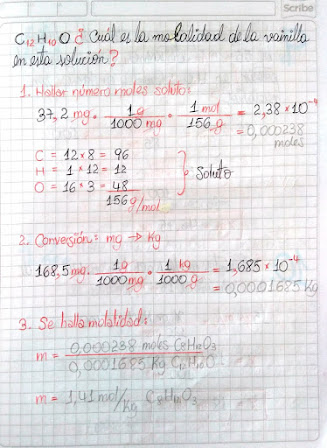 Scribe
C₁₂H₁₀O ¿Cuál es la molalidad de la vainilla
en esta solución?
1. Hallar número moles soluto:
37,2 mg · 1g / 1000 mg · 1 mol / 156 g = 2,38 * 10⁻⁴
= 0,000238
moles
C = 12 * 8 = 96
H = 1 * 12 = 12
O = 16 * 3 = 48
156 g/mol
Soluto
2. Conversión: mg → Kg
168,5 mg · 1g / 1000 mg · 1 kg / 1000 g = 1,685 * 10⁻⁴
= 0,0001685 Kg
3. Se halla molalidad:
m = 0,000238 moles C₈H₁₂O₃ / 0,0001685 Kg C₁₂H₁₀O
m = 1,41 mol/Kg C₈H₁₂O₃